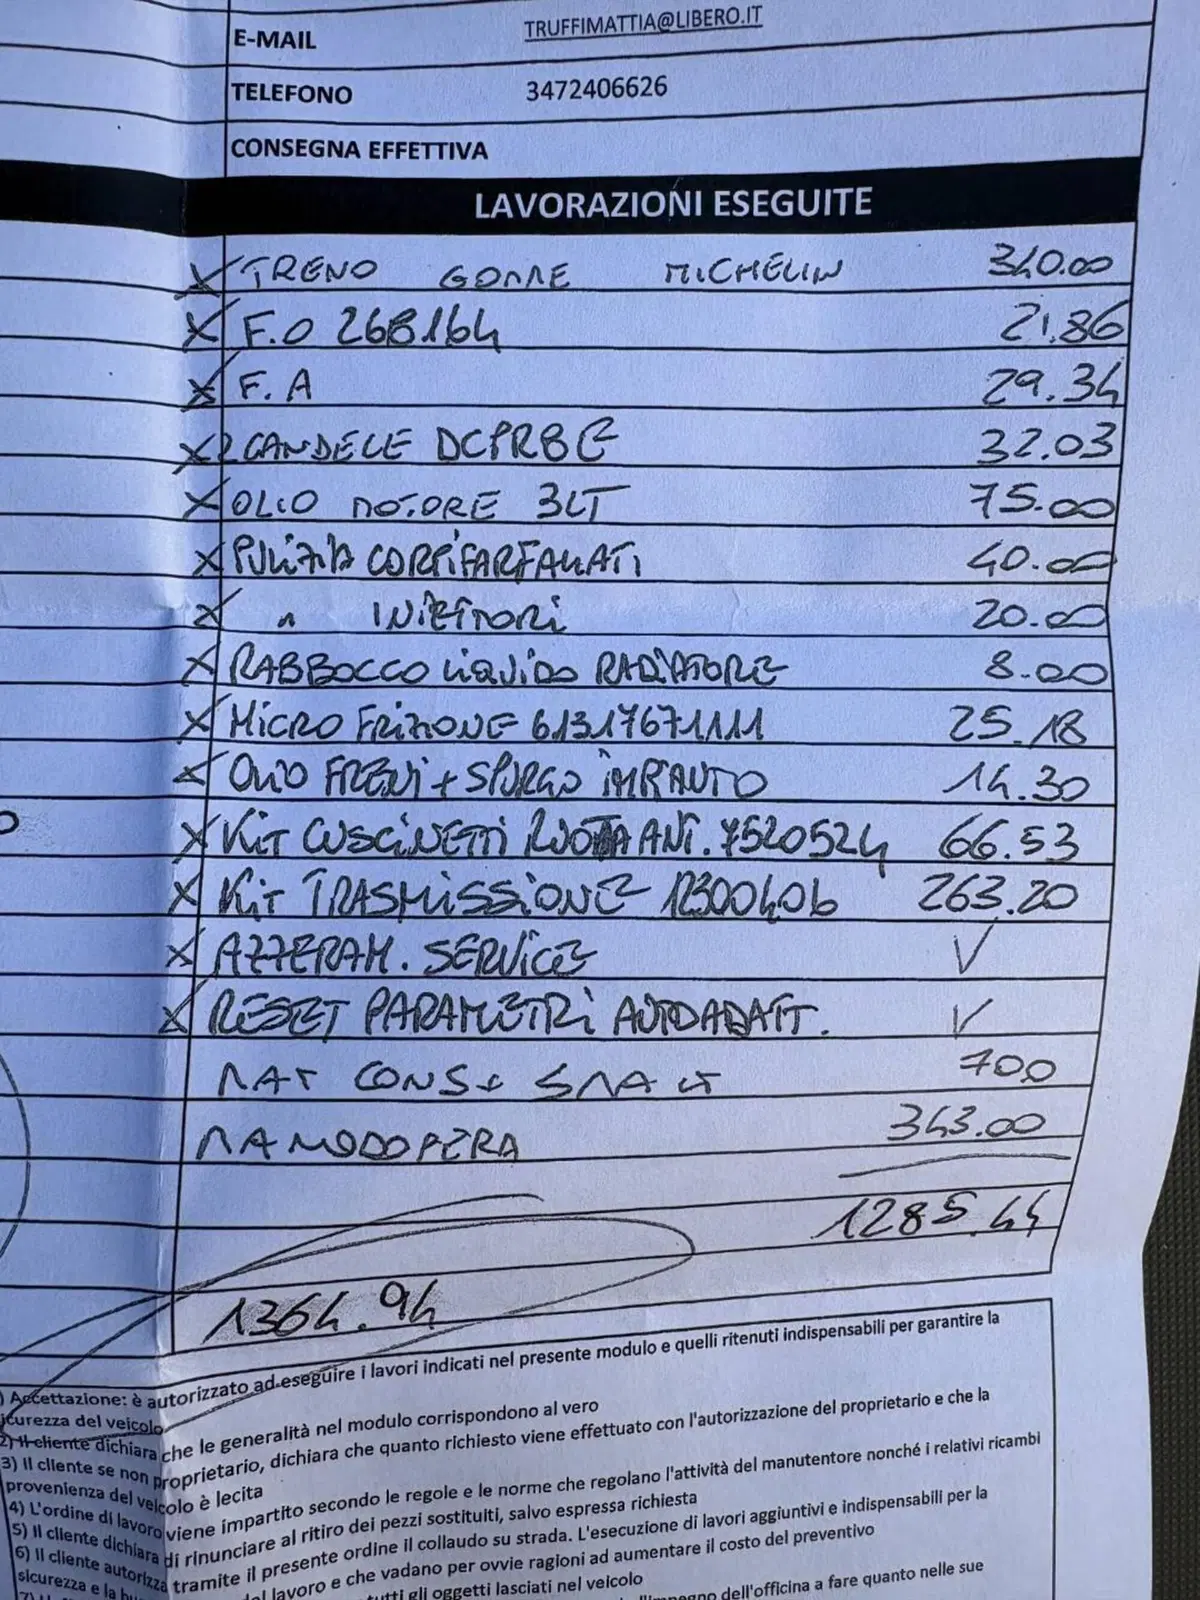 E-MAIL TRUFFIMATTIA@LIBERO.IT
TELEFONO 3472406626
CONSEGNA EFFETTIVA
LAVORAZIONI ESEGUITE
X TRENO GOMME MICHELIN 340.00
X F.O 268164 21.86
X F. A 29.34
X 2 CANDELE DCPR8E 32.03
X OLIO MOTORE 3LT 75.00
X PULIZIA CORPIFARFALLATI 40.00
X " INIETTORI 20.00
X RABBOCCO LIQUIDO RADIATORE 8.00
X MICRO FRIZIONE 61317671111 25.18
X OLIO FRENI + SPURGO IMPIANTO 14.30
X KIT CUSCINETTI RUOTA ANT. 7520524 66.53
X KIT TRASMISSIONE 12300406 263.20
X AZZERAM. SERVICE V
X RESET PARAMETRI AUTOADATT. V
MAT CONS + SMALT 7.00
MANODOPERA 343.00
1285.44
1364.94
) Accettazione: è autorizzato ad eseguire i lavori indicati nel presente modulo e quelli ritenuti indispensabili per garantire la
icurezza del veicolo
2) Il cliente dichiara che le generalità nel modulo corrispondono al vero
3) Il cliente se non proprietario, dichiara che quanto richiesto viene effettuato con l'autorizzazione del proprietario e che la
provenienza del veicolo è lecita
4) L'ordine di lavoro viene impartito secondo le regole e le norme che regolano l'attività del manutentore nonché i relativi ricambi
5) Il cliente dichiara di rinunciare al ritiro dei pezzi sostituiti, salvo espressa richiesta
6) Il cliente autorizza tramite il presente ordine il collaudo su strada. L'esecuzione di lavori aggiuntivi e indispensabili per la
sicurezza e la lavoro e che vadano per ovvie ragioni ad aumentare il costo del preventivo
tutti gli oggetti lasciati nel veicolo
dell'officina a fare quanto nelle sue